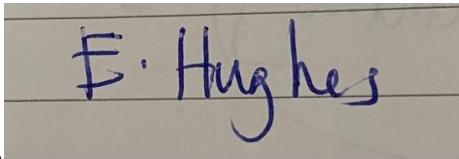 E. Hughes